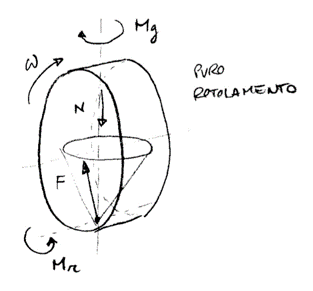 Mg
ω
PURO
ROTOLAMENTO
N
F
Mr